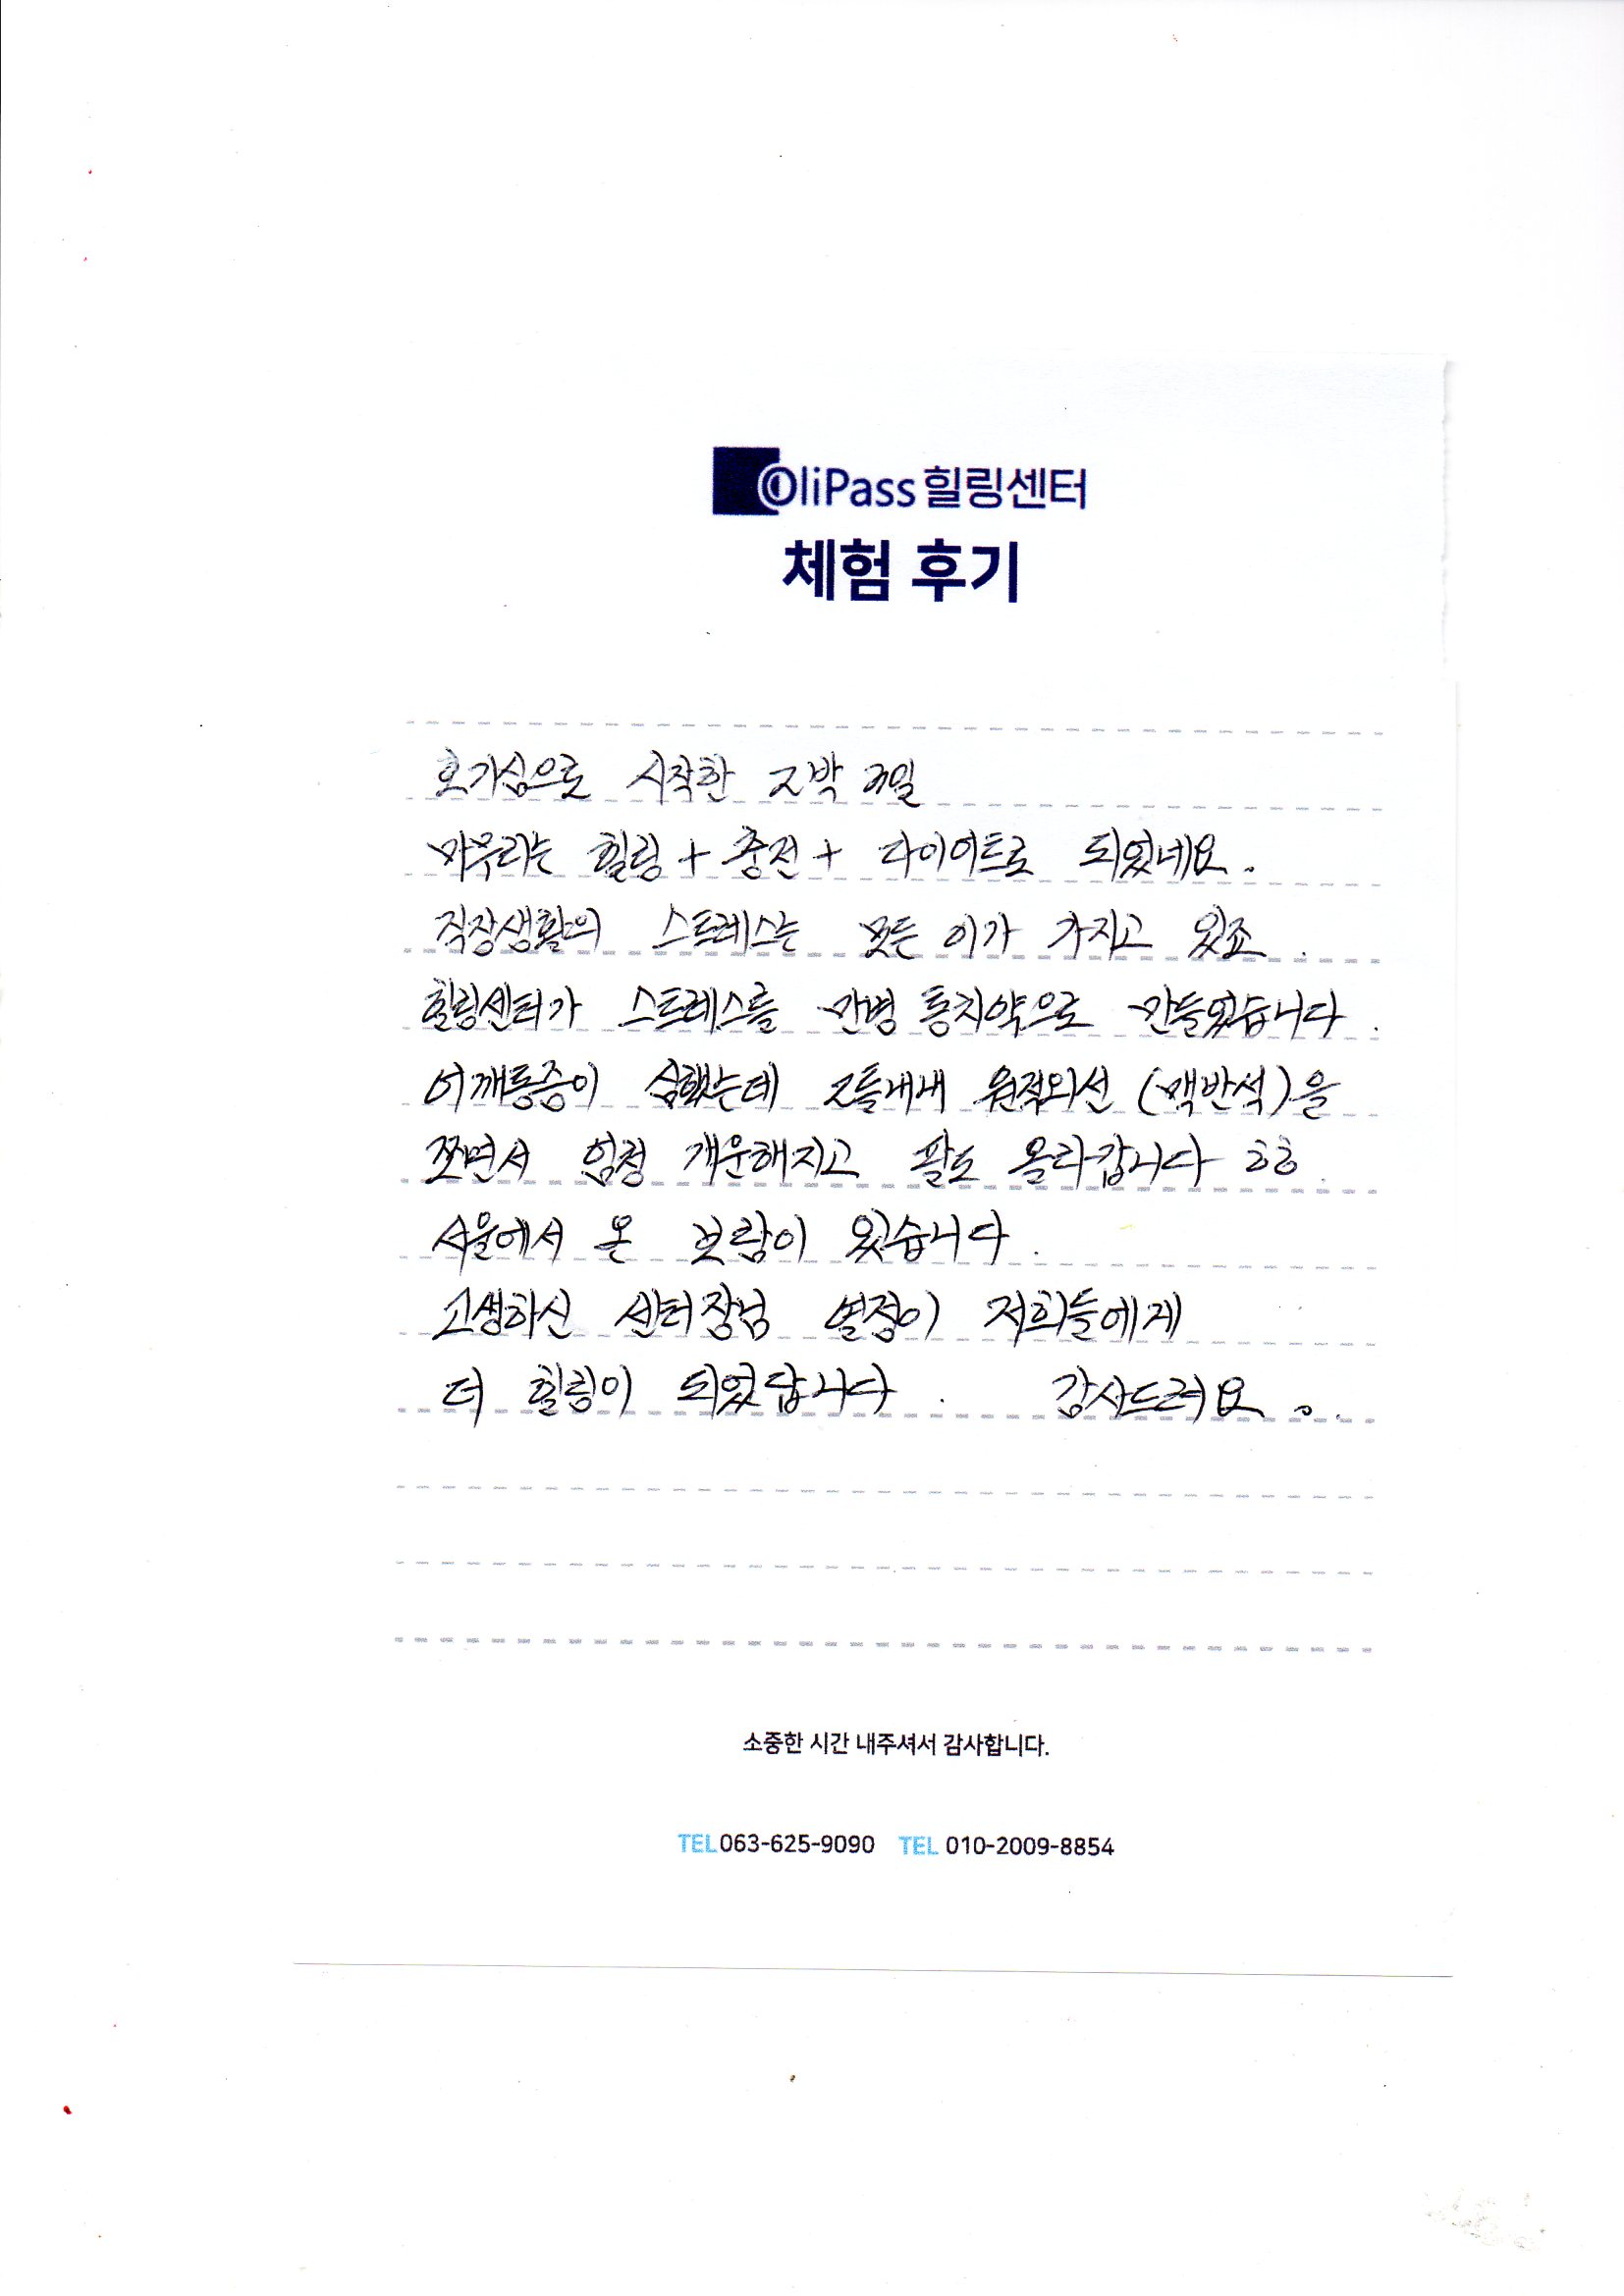 OliPass 힐링센터
체험 후기
호기심으로 시작한 2박 3일
마무리는 힐링 + 충전 + 다이어트로 되었네요.
직장생활의 스트레스는 모든 이가 가지고 있죠.
힐링센터가 스트레스를 만병통치약으로 만들었습니다.
어깨통증이 심했는데 2틀내내 원적외선 (맥반석)을
쪼면서 엄청 개운해지고 팔도 올라갑니다 ㅎㅎ.
서울에서 온 보람이 있습니다.
고생하신 센터장님 열정이 저희들에게
더 힐링이 되었답니다. 감사드려요.
소중한 시간 내주셔서 감사합니다.
TEL 063-625-9090 TEL 010-2009-8854